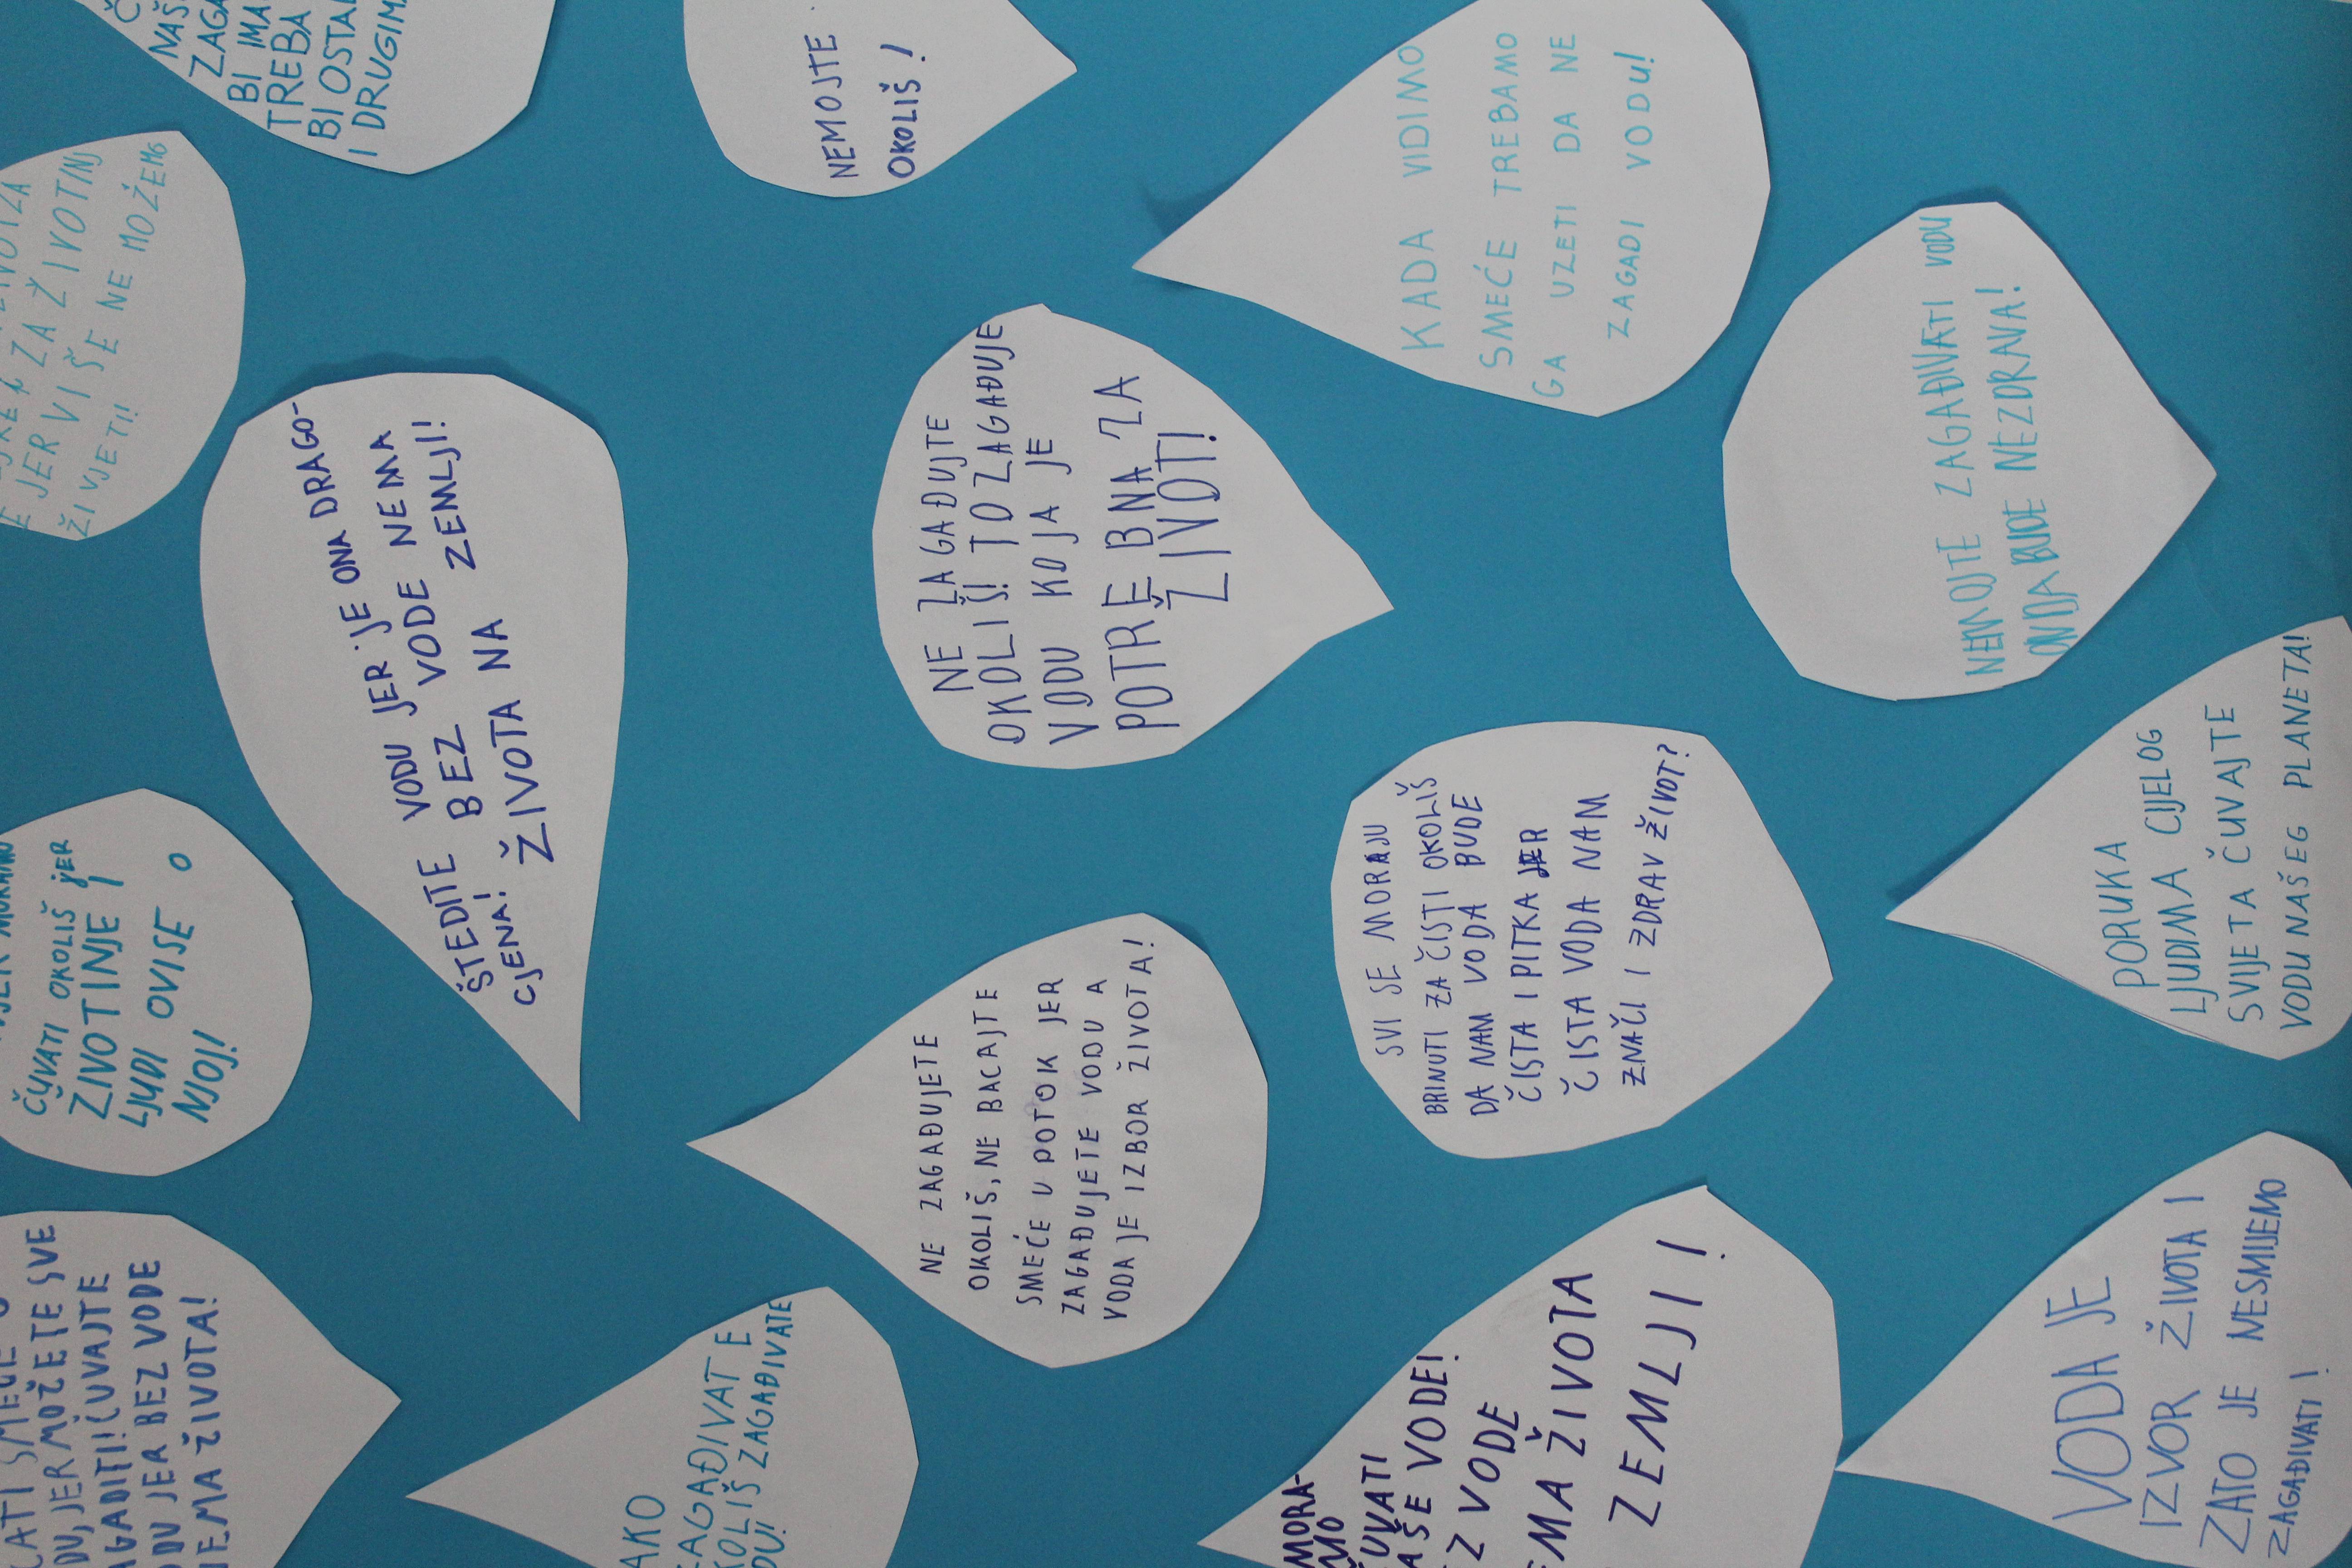 NEMOJTE
OKOLIŠ!
KADA VIDIMO
SMEĆE TREBAMO
GA UZETI DA NE
ZAGADI VODU!
BI IMA
TREBA
BI OSTAL
I DRUGIM
ZA ŽIVOTINJ
JER VIŠE NE MOŽEMO
ŽIVJETI!
ŠTEDITE VODU JER JE ONA DRAGO-
CJENA! BEZ VODE NEMA
ŽIVOTA NA ZEMLJI!
NE ZAGAĐUJTE
OKOLIŠ! TO ZAGAĐUJE
VODU KOJA JE
POTREBNA ZA
ŽIVOT!
NEMOJTE ZAGAĐIVATI VODU
ONDA BUDE NEZDRAVA!
ČUVATI OKOLIŠ JER
ŽIVOTINJE I
LJUDI OVISE O
NJOJ!
NE ZAGAĐUJETE
OKOLIŠ, NE BACAJTE
SMEĆE U POTOK JER
ZAGAĐUJETE VODU A
VODA JE IZBOR ŽIVOTA!
SVI SE MORAJU
BRINUTI ZA ČISTI OKOLIŠ
DA NAM VODA BUDE
ČISTA I PITKA JER
ČISTA VODA NAM
ZNAČI I ZDRAV ŽIVOT?
PORUKA
LJUDIMA CIJELOG
SVIJETA ČUVAJTE
VODU NAŠEG PLANETA!
CATI SMEĆE
DU, JER MOŽETE SVE
AGADITI! ČUVAJTE
ODU JER BEZ VODE
NEMA ŽIVOTA!
AKO
ZAGAĐIVATE
KOLIŠ ZAGAĐIVATE
DU!
MORA-
MO
ČUVATI
AŠE VODE!
EZ VODE
EMA ŽIVOTA
ZEMLJI!
VODA JE
IZVOR ŽIVOTA I
ZATO JE NESMIJEMO
ZAGAĐIVATI!